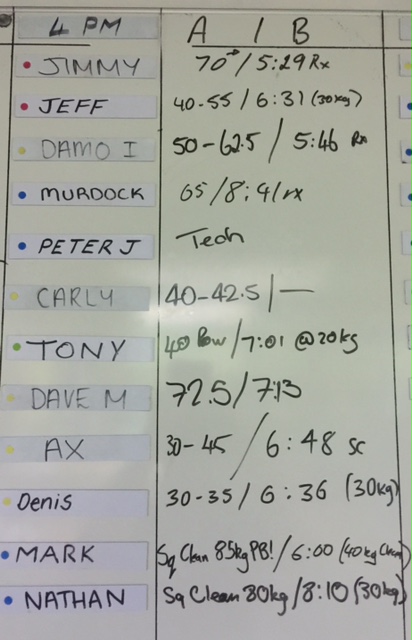 4 PM A / B
JIMMY 70+ / 5:29 Rx
JEFF 40-55 / 6:31 (30kg)
DAMO I 50-62.5 / 5:46 Rx
MURDOCK 65/8:41 rx
PETER J Tech
CARLY 40-42.5 / —
TONY 40 Pow / 7:01 @20kg
DAVE M 72.5 / 7:13
AX 30-45 / 6:48 sc
Denis 30-35 / 6:36 (30kg)
MARK Sq Clean 85kg PB! / 6:00 (40kg Clean)
NATHAN Sq Clean 80kg / 8:10 (30kg)